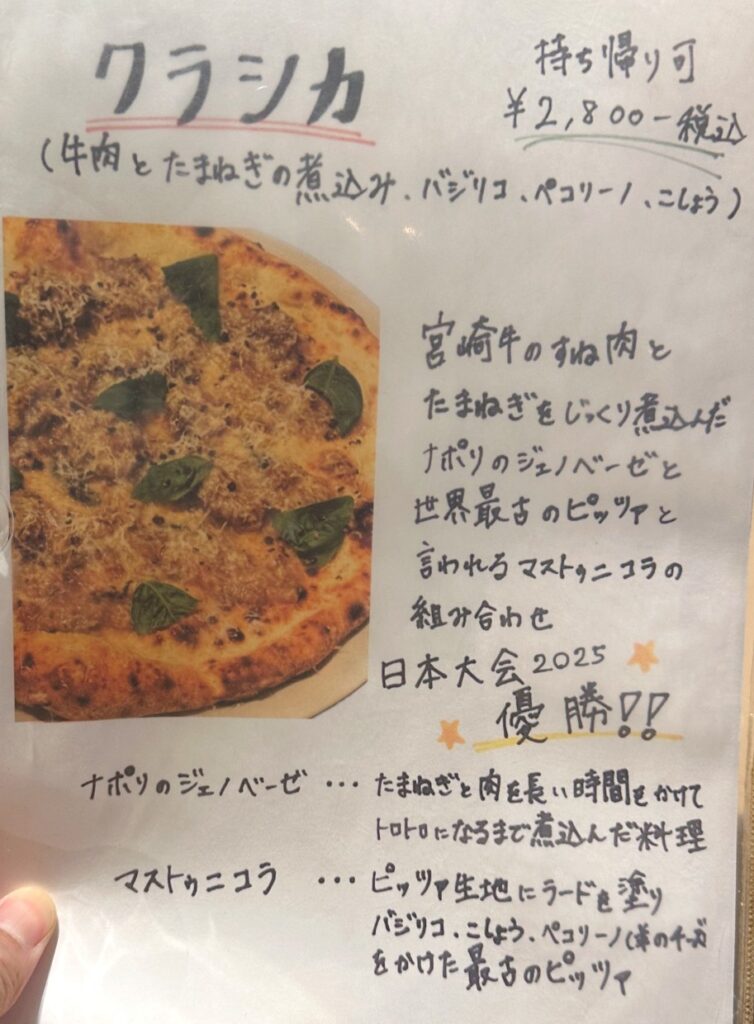 クラシカ
持ち帰り可
¥2,800-税込
(牛肉とたまねぎの煮込み、バジリコ、ペコリーノ、こしょう)
宮崎牛のすね肉と
たまねぎをじっくり煮込んだ
ナポリのジェノベーゼと
世界最古のピッツァと
言われるマストゥニコラの
組み合わせ
日本大会2025
優勝!!
ナポリのジェノベーゼ ・・・ たまねぎと肉を長い時間をかけて
トロトロになるまで煮込んだ料理
マストゥニコラ ・・・ ピッツァ生地にラードを塗り
バジリコ、こしょう、ペコリーノ(羊のチーズ
をかけた最古のピッツァ